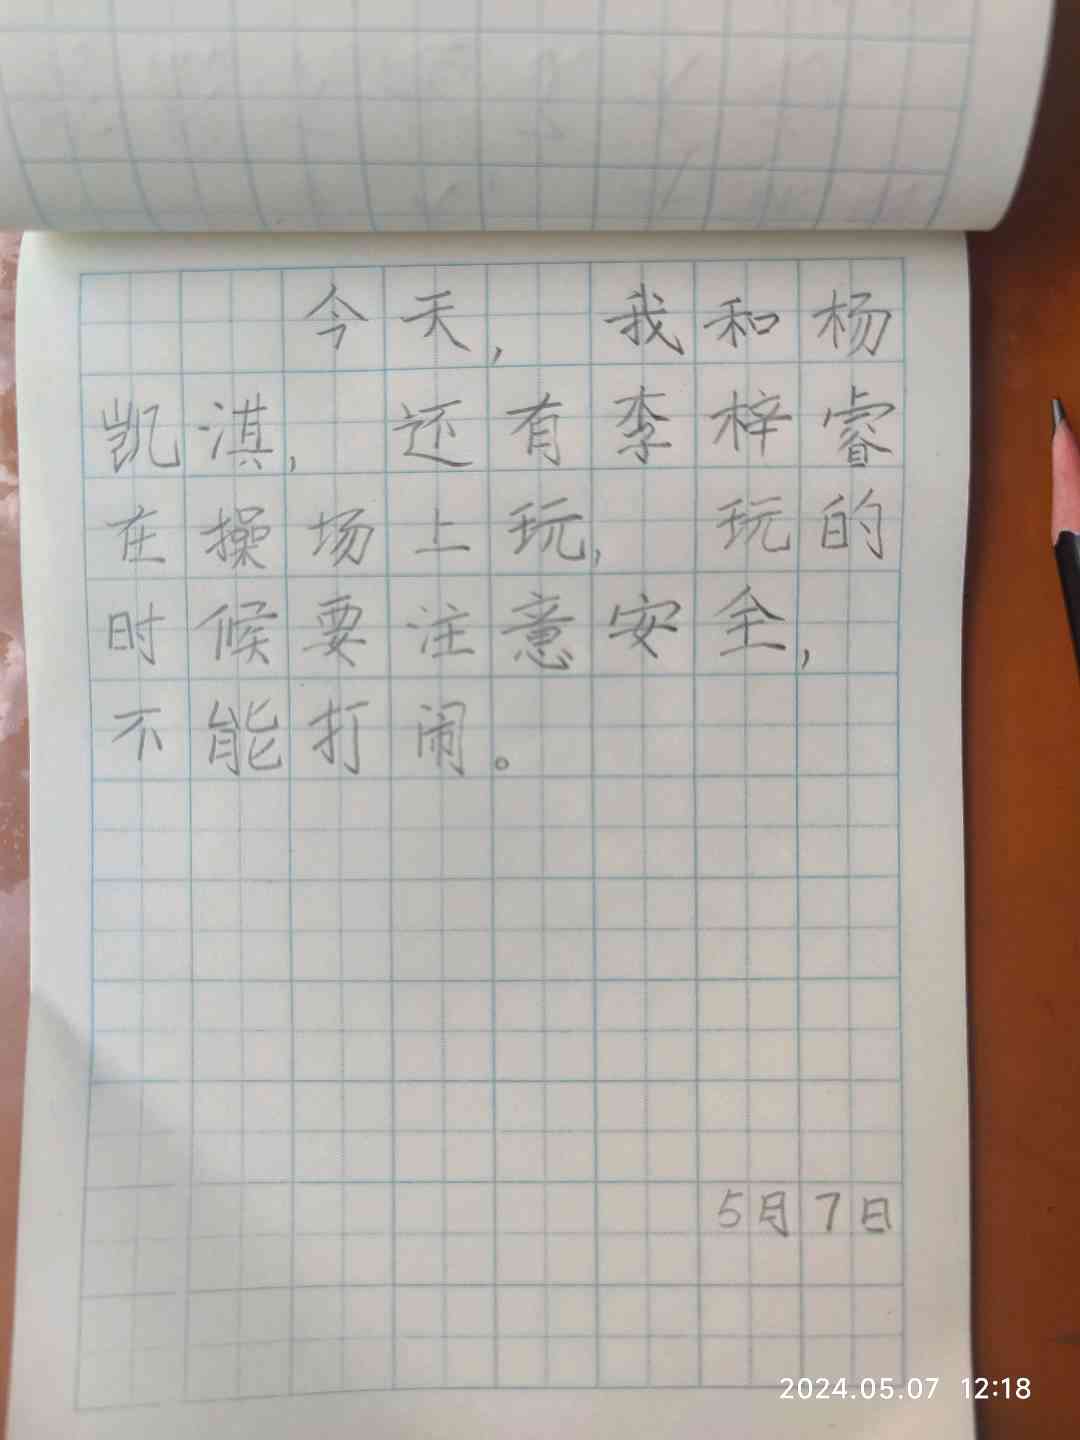 今天，我和杨
凯淇，还有李梓睿
在操场上玩，玩的
时候要注意安全，
不能打闹。
5月7日
2024.05.07 12:18